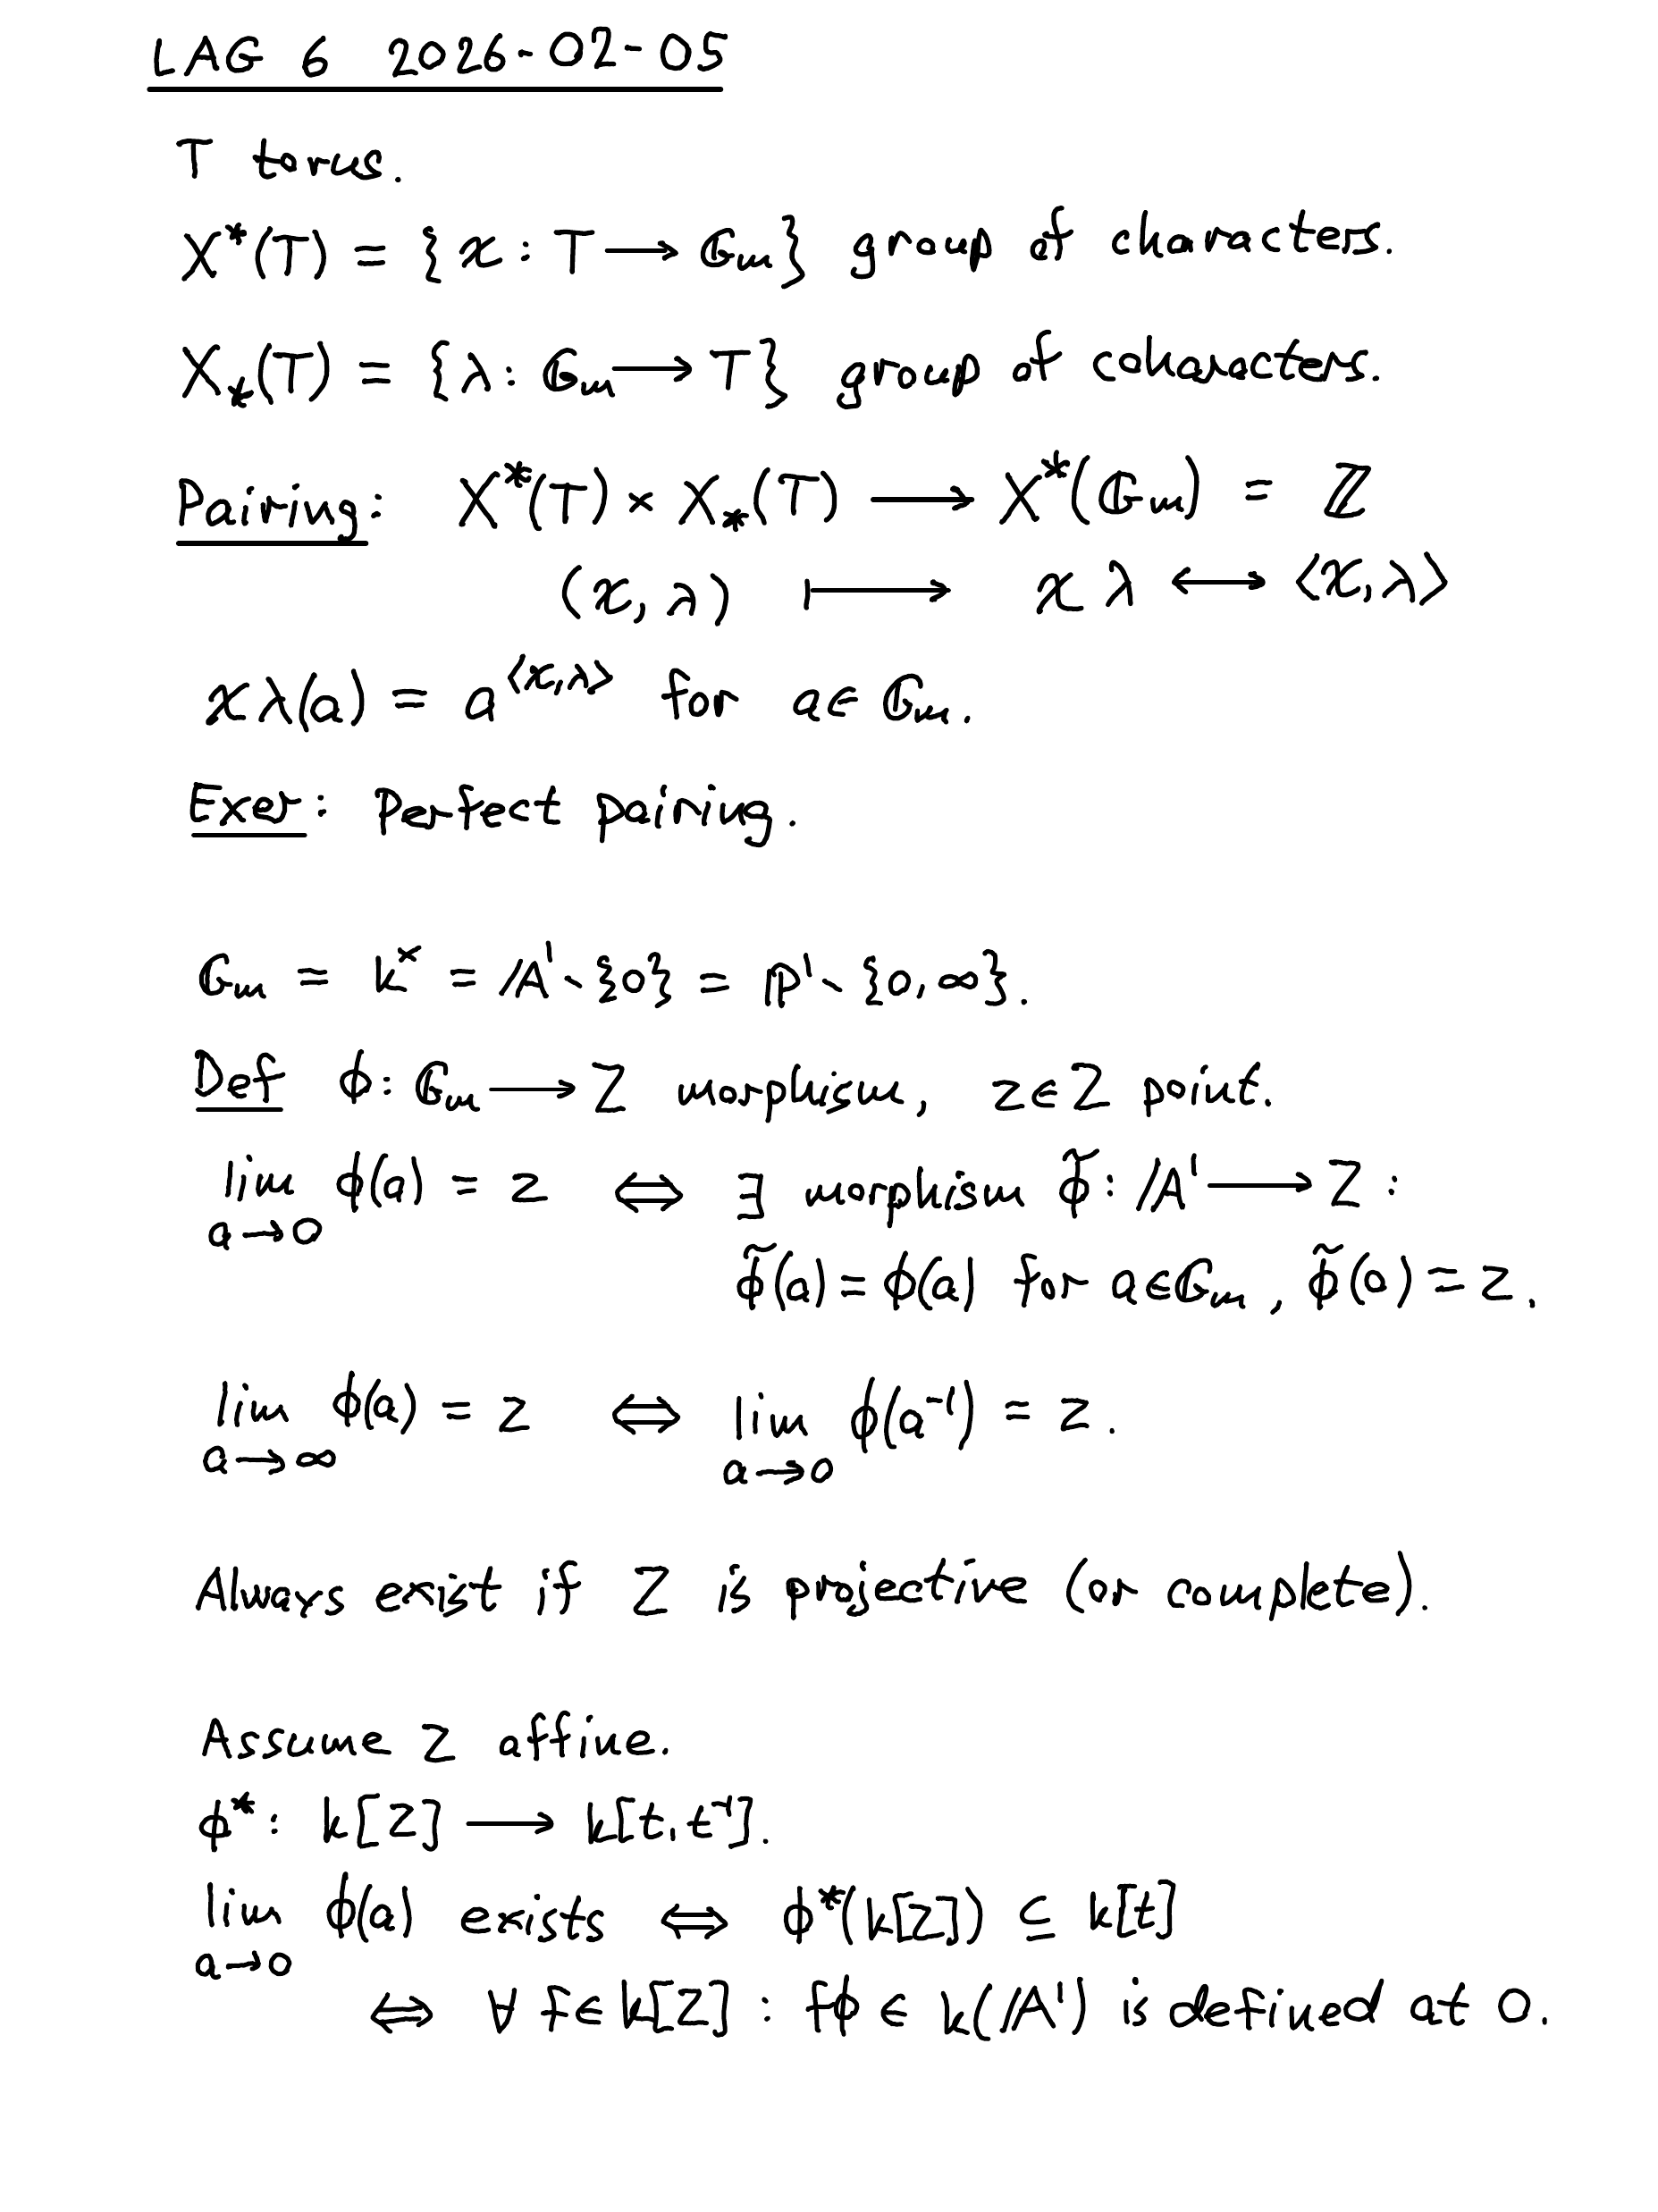 LAG 6 2026-02-05
T torus.
X*(T) = {χ: T ⟶ 𝔾ₘ} group of characters.
X⁎(T) = {λ: 𝔾ₘ ⟶ T} group of coharacters.
Pairing: X*(T) × X⁎(T) ⟶ X*(𝔾ₘ) = ℤ
(χ, λ) ⟼ χ λ ⟷ ⟨χ, λ⟩
χλ(a) = a^⟨χ,λ⟩ for a ∈ 𝔾ₘ.
Exer: Perfect pairing.
𝔾ₘ = k^× = 𝔸¹ ∖ {0} = ℙ¹ ∖ {0, ∞}.
Def ϕ: 𝔾ₘ ⟶ Z morphism, z ∈ Z point.
lim_{a→0} ϕ(a) = z ⇔ ∃ morphism ϕ̃: 𝔸¹ ⟶ Z :
ϕ̃(a) = ϕ(a) for a ∈ 𝔾ₘ, ϕ̃(0) = z.
lim_{a→∞} ϕ(a) = z ⇔ lim_{a→0} ϕ(a⁻¹) = z.
Always exist if Z is projective (or complete).
Assume Z affine.
ϕ*: k[Z] ⟶ k[t, t⁻¹].
lim_{a→0} ϕ(a) exists ⇔ ϕ*(k[Z]) ⊆ k[t]
⇔ ∀ f ∈ k[Z] : fϕ ∈ k(𝔸¹) is defined at 0.